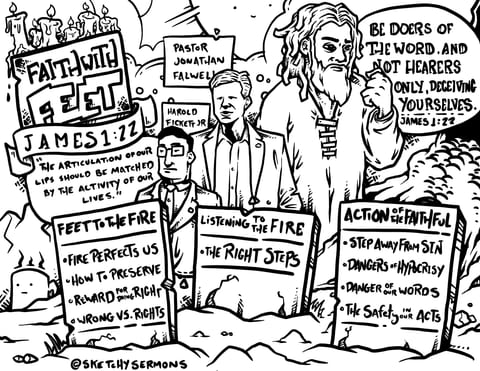 FAITH WITH
FEET
JAMES 1:22
"THE ARTICULATION OF OUR
LIPS SHOULD BE MATCHED
BY THE ACTIVITY OF OUR
LIVES."
PASTOR
JONATHAN
FALWELL
HAROLD
FICKETT JR
BE DOERS OF
THE WORD, AND
NOT HEARERS
ONLY, DECEIVING
YOURSELVES.
JAMES 1:22
FEET TO THE FIRE
• FIRE PERFECTS US
• HOW TO PRESERVE
• REWARD FOR DOING RIGHT
• WRONG VS. RIGHTS
LISTENING TO THE FIRE
• THE RIGHT STEPS
ACTION OF THE FAITHFUL
• STEP AWAY FROM SIN
• DANGERS OF HYPOCRISY
• DANGER OF OUR WORDS
• THE SAFETY IN OUR ACTS
@SKETCHYSERMONS